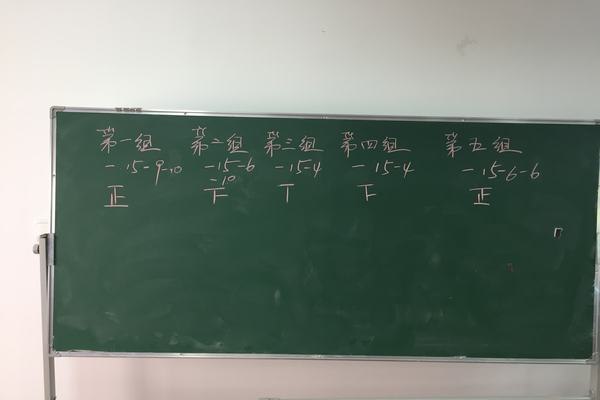 第一组 第二组 第三组 第四组 第五组
-15-9-10 -15-6 -15-4 -15-4 -15-6-6
-10
正 下 丅 下 正